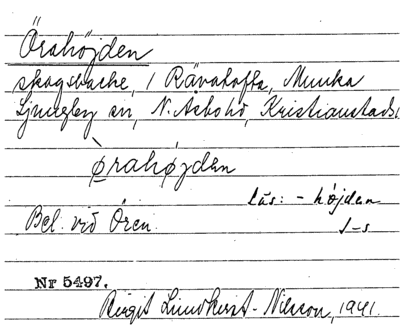 Örahöjden
skogsbacke, i Rävatofta, Munka
Ljungby sn, N. Åsbo hd, Kristianstads l.
ø̀rahøjden
läs: - höjden
Bel. vid Ören.
J-s
Nr 5497.
Birgit Lundkvist-Nilsson, 1941.